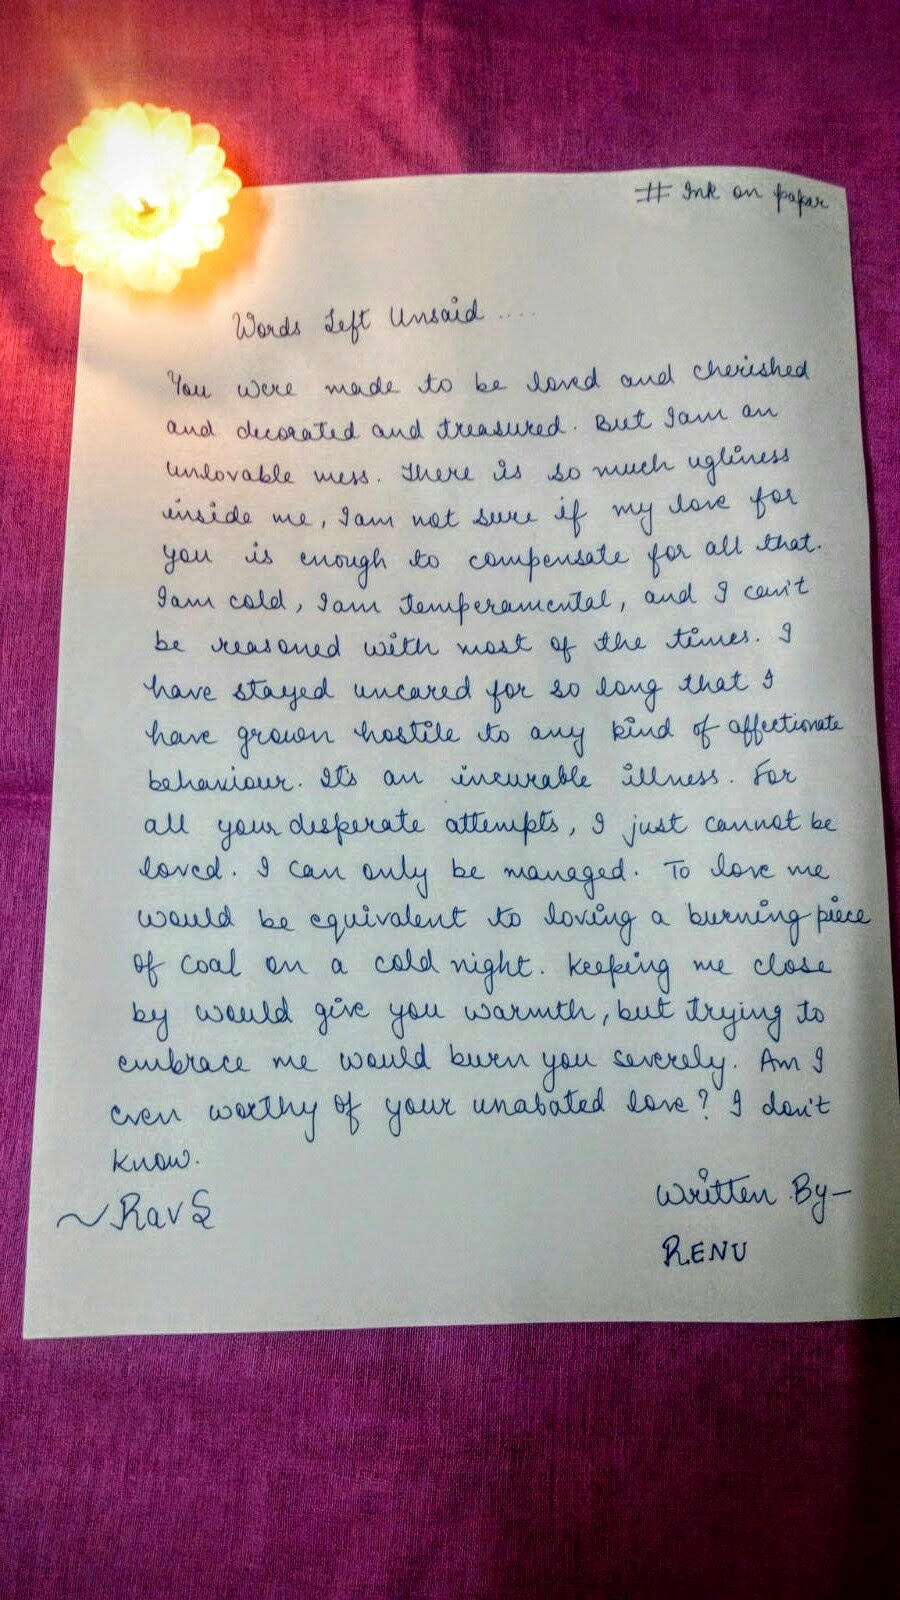 # Ink on papar
Words Left Unsaid ....
You were made to be loved and cherished
and decorated and treasured. But I am an
unlovable mess. There is so much ugliness
inside me, I am not sure if my love for
you is enough to compensate for all that.
I am cold, I am temperamental, and I can't
be reasoned with most of the times. I
have stayed uncared for so long that I
have grown hostile to any kind of affectionate
behaviour. It's an incurable illness. For
all your desperate attempts, I just cannot be
loved. I can only be managed. To love me
would be equivalent to loving a burning piece
of coal on a cold night. Keeping me close
by would give you warmth, but trying to
embrace me would burn you severely. Am I
even worthy of your unabated love? I don't
know.
~RavS
Written By-
RENU